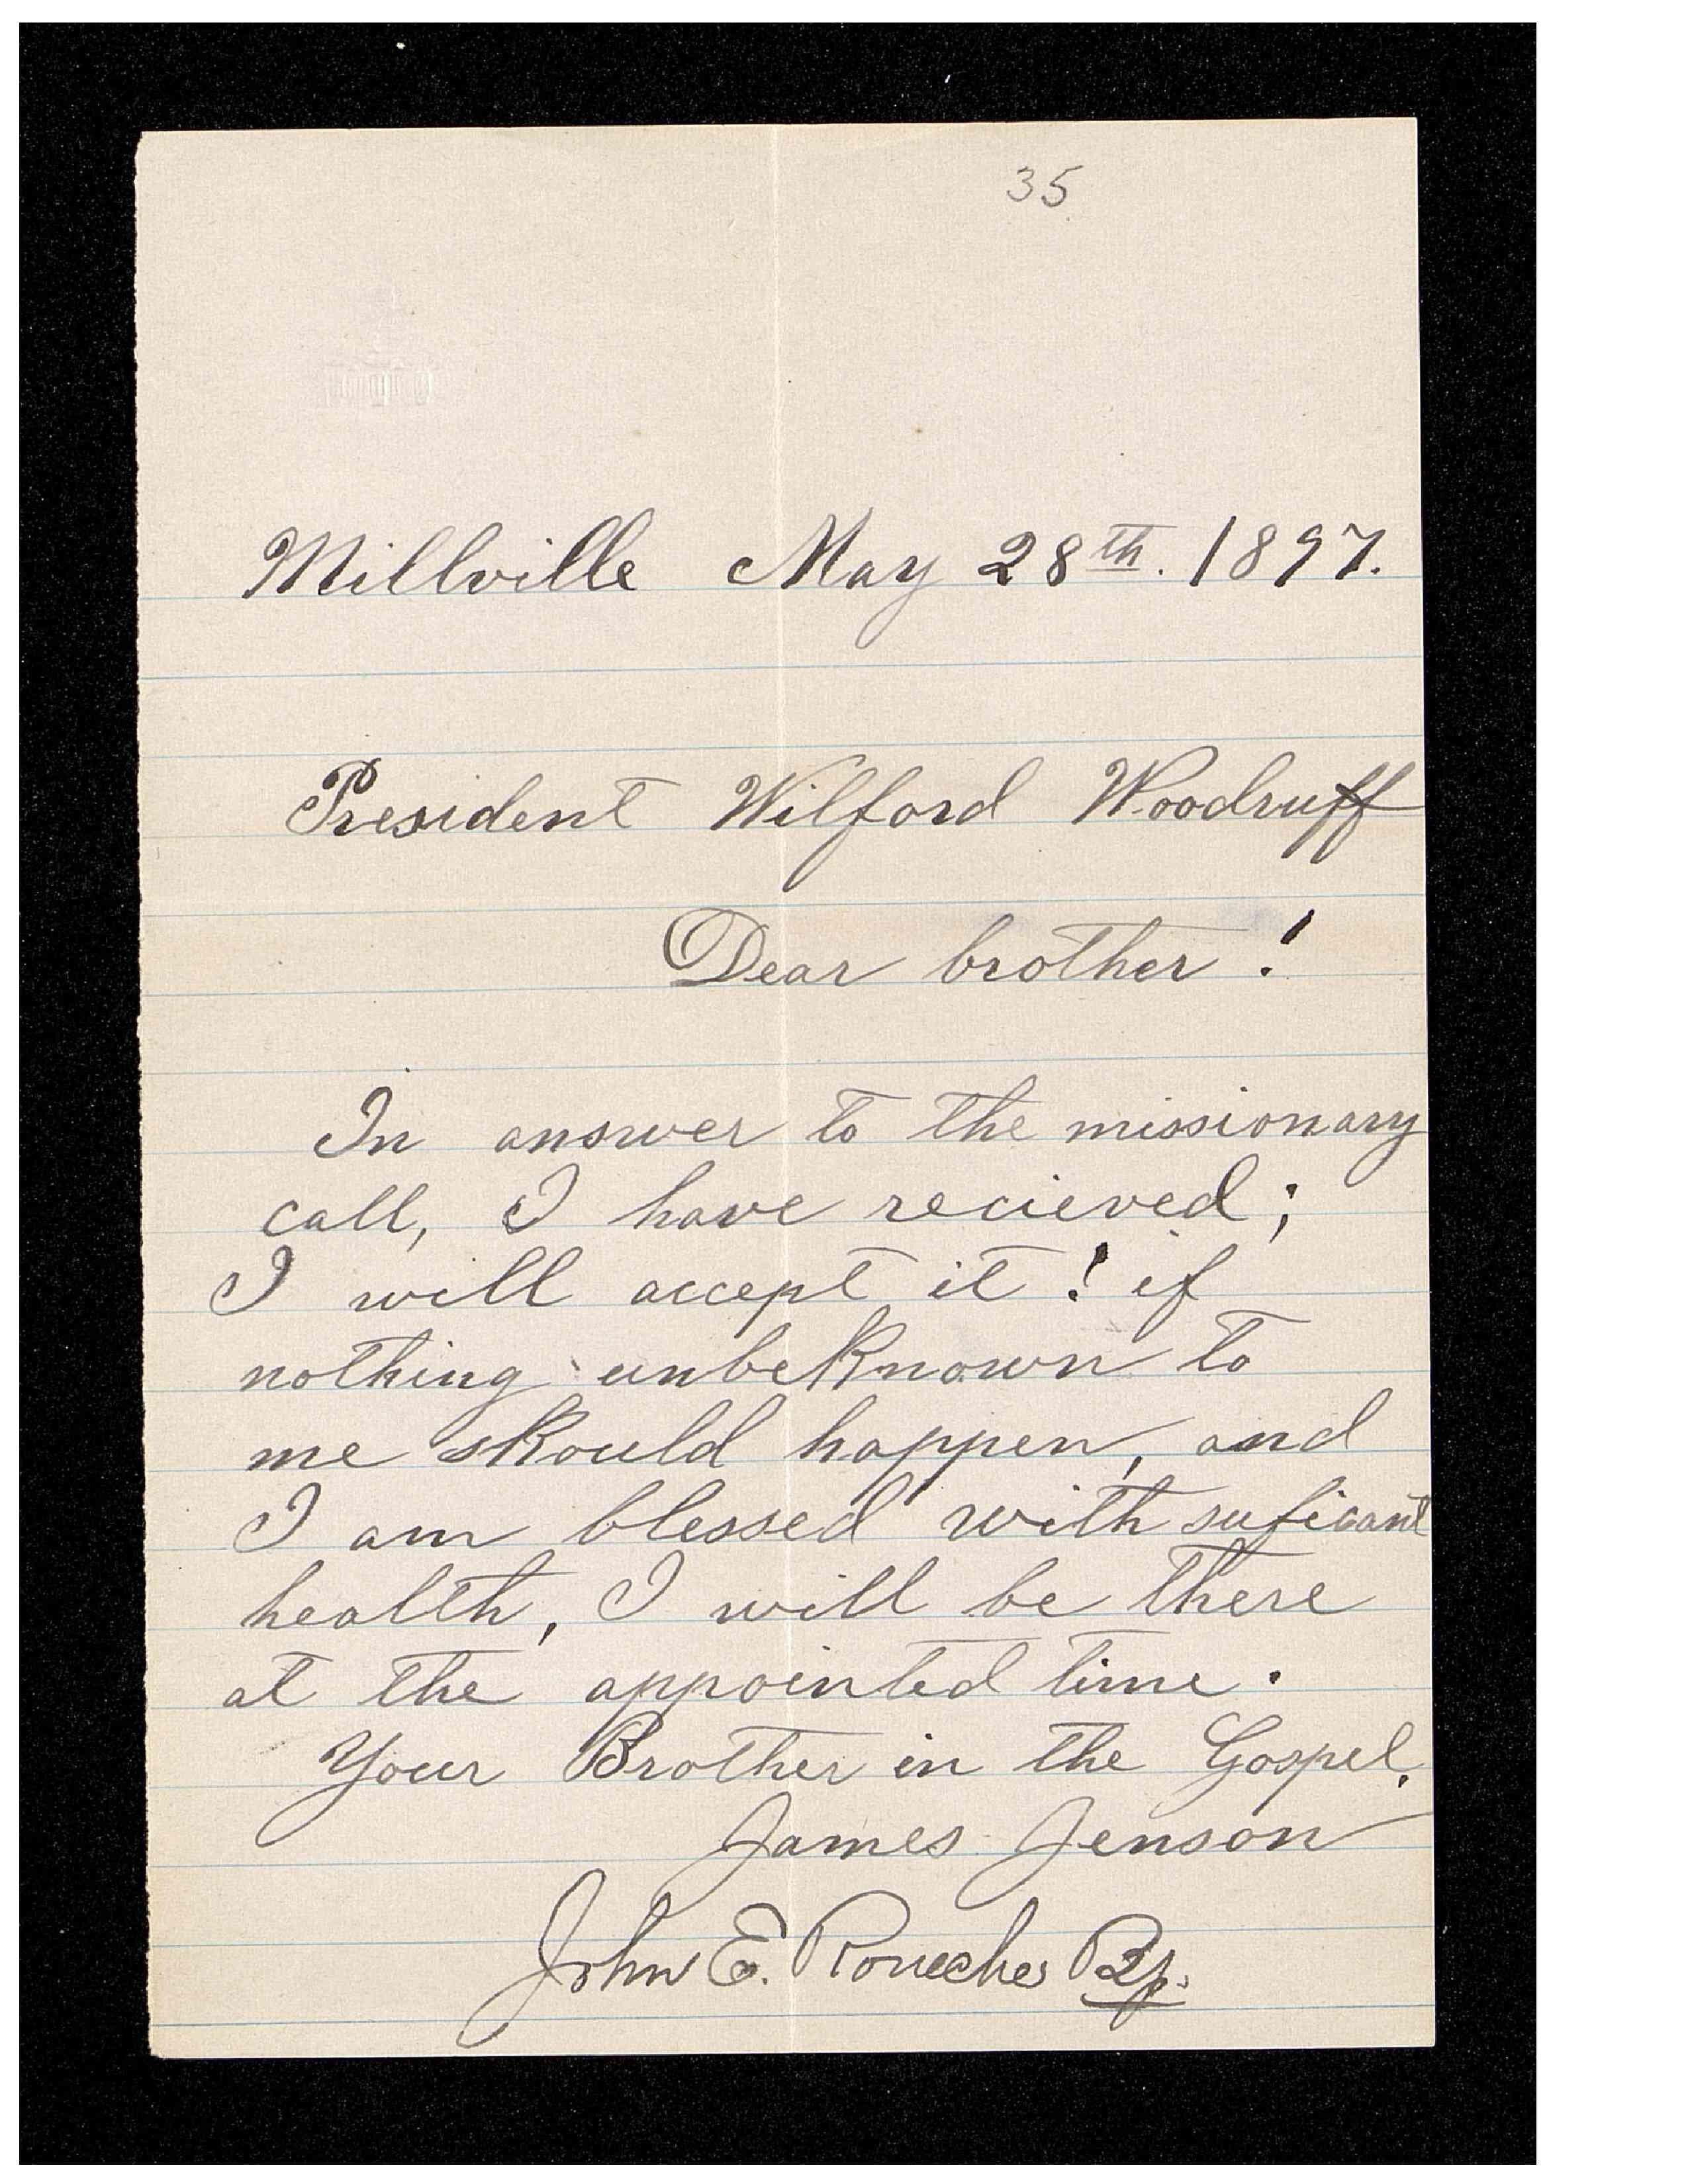 35
Millville May 28th. 1897.
President Wilford Woodruff
Dear brother!
In answer to the missionary
call, I have recieved;
I will accept it! if
nothing unbeknown to
me should happen, and
I am blessed with suficant
health, I will be there
at the appointed time.
Your Brother in the Gospel.
James Jenson
John E. Roueche Bp.